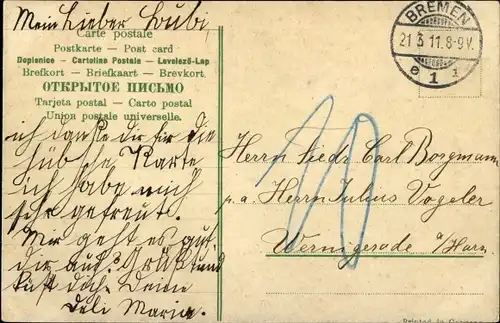 Mein Lieber Bubi,
Carte postale
Postkarte - Post card
Dopisnice - Cartolina Postale - Levelező-Lap
Brefkort - Briefkaart - Brevkort.
ОТКРЫТОЕ ПИСЬМО
Tarjeta postal - Carto postal
Union postale universelle.
ich danke dir für die
hübsche Karte
ich habe mich
sehr gefreut.
Mir geht es gut,
dir auch? Grüßt und
küßt dich. Deine
Deli Maria.
BREMEN
21 3 11. 8-9V.
1
10
Herrn Carl Borgmann
p. a. Herrn Julius Vogeler
Wernigerode a/Harz.
Printed in Germany